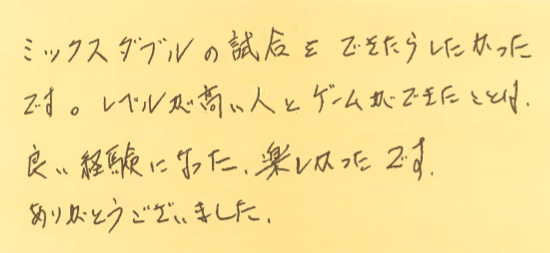 ミックスダブルの試合をできたらしたかった
です。レベルが高い人とゲームができたことは、
良い経験になった、楽しかったです。
ありがとうございました。